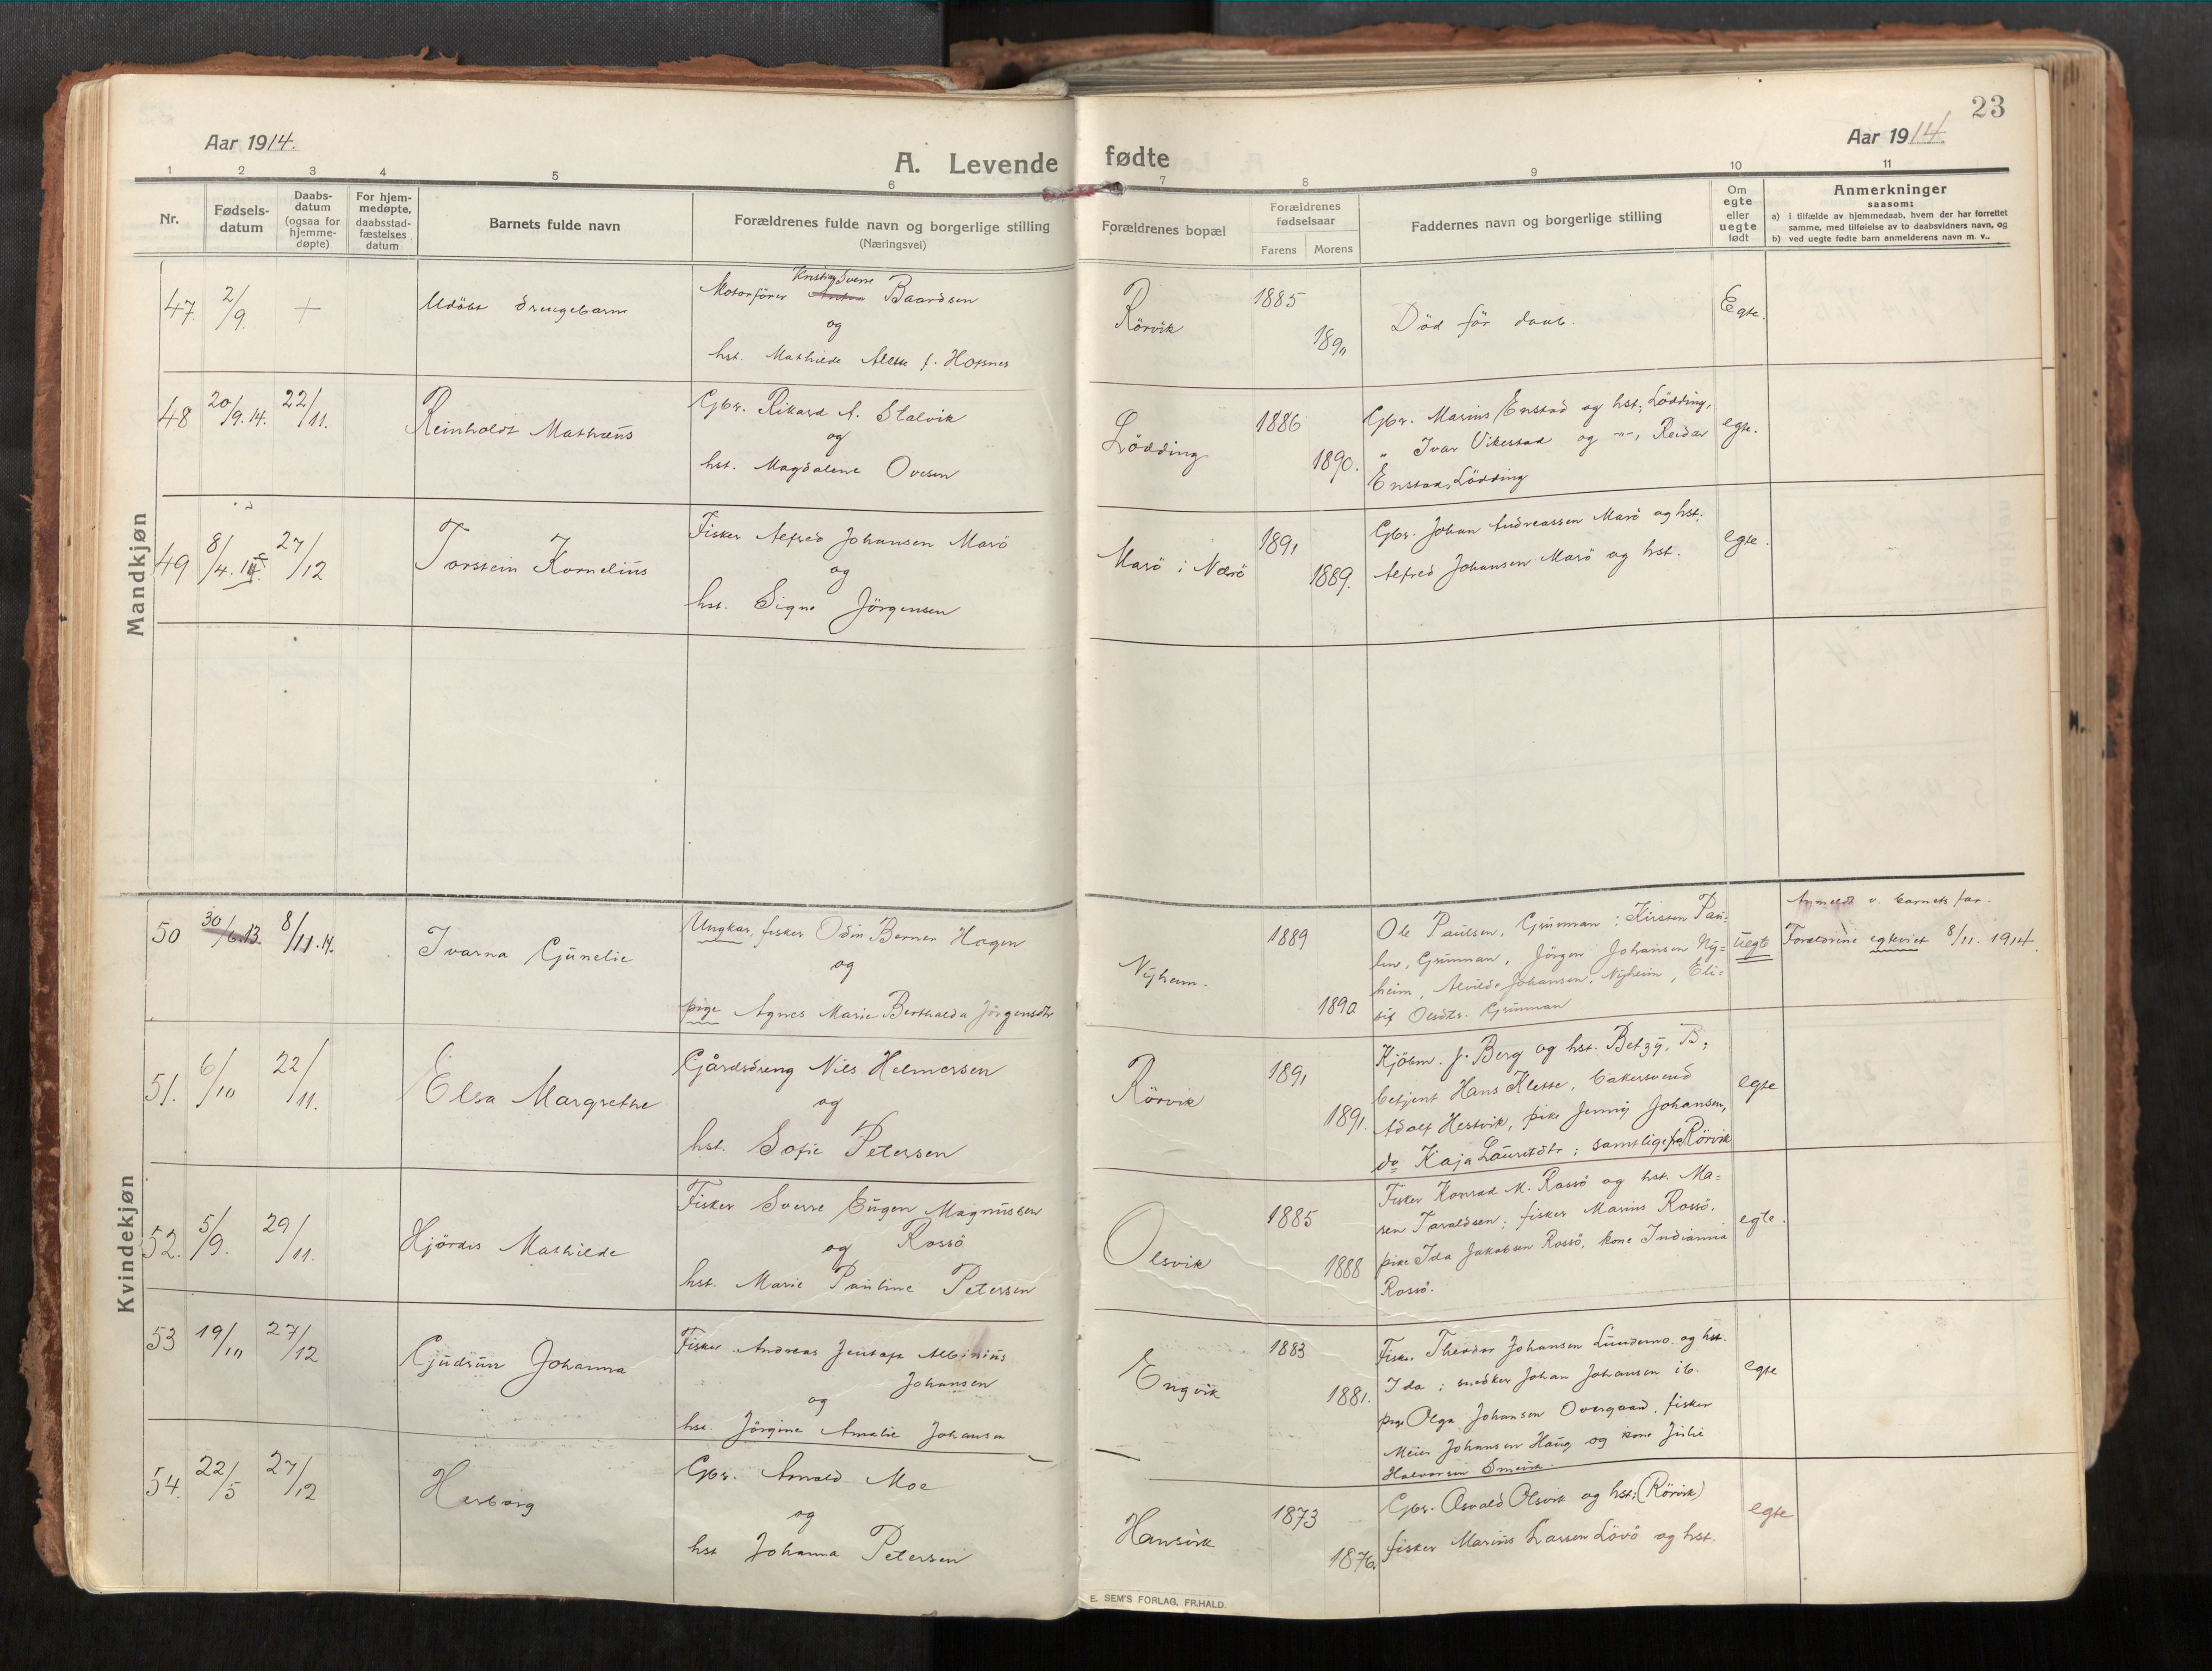 23
Aar 1914.
Aar 1914
A. Levende fødte
1 2 3 4 5 6 7 8 9 10 11
Nr.
Fødsels-
datum
Daabs-
datum
(ogsaa for
hjemme-
døpte)
For hjem-
medøpte,
daabsstad-
fæstelses
datum
Barnets fulde navn
Forældrenes fulde navn og borgerlige stilling
(Næringsvei)
Forældrenes bopæl
Forældrenes
fødselsaar
Farens Morens
Faddernes navn og borgerlige stilling
Om
egte
eller
uegte
født
Anmerkninger
saasom:
a) i tilfælde av hjemmedaab, hvem der har forrettet
samme, med tilføielse av to daabsvidners navn, og
b) ved uegte fødte barn anmelderens navn m. v..
Mandkjøn
47. 2/9. + Udöbt drengebarn
Kristian Sverre
Motorförer Baardsen
og
hst. Mathilde f. Hofsnes
Rörvik 1885
Död för daab. Egte.
48 20/9.14. 22/11. Reinholdt Mathæus
Gbr. Rikard A. Stalvik
og
hst. Magdalene Ovesen
Lödding 1886
1890.
Gbr. Marius Enstad og hst., Lödding,
" Ivar Vikestad og -"-, Reidar
Enstad, Lödding
egte.
49 8/4. 27/12 Torstein Kornelius
Fisker Alfred Johansen Marö
og
hst. Signe Jörgensen
Marö i Nærö 1891
1889.
Gbr. Johan Andreassen Marö og hst.
Alfred Johansen Marö og hst.
egte.
Kvindekjøn
50 30/6.13. 8/11.14. Ivarna Gunelie
Ungkar, fisker Odin Berner Hagen
og
pige Agnes Marie Berthalda Jörgensdtr
Nyheim. 1889
1890
Ole Paulsen, Grünnan; Kirsten Pau-
line, Grünnan, Jörgen Johansen Ny-
heim, Alvilde Johansen, Nyheim, Eli-
sif Olsdtr. Grünnan
uegte
Anmeldt v. barnets far.
Forældrene egteviet 8/11. 1914.
51. 6/10 22/11. Elsa Margrethe
Gårdsdreng Nils Helmersen
og
hst. Sofie Petersen
Rörvik 1891
1891.
Kjöbm. J. Berg og hst. Betzy, B;
betjent Hans Klette, bakersvend
Adolf Hestvik, pike Jenny Johansen,
do Kaja Lauritsdtr; samtlige fra Rörvik
egte
52. 5/9. 29/11. Hjördis Mathilde
Fisker Sverre Eugen Magnussen
og Rossö
hst. Marie Pauline Petersen
Olsvik 1885
1888
Fisker Konrad M. Rossö og hst. Ma-
sen Taraldsen; fisker Marius Rossö,
pike Ida Jakobsen Rossö, kone Indianna
Rossö.
egte.
53 19/10 27/12 Gudrun Johanna
Fisker Andreas Jentoft Albinius
Johansen
og
hst. Jörgine Amalie Johansen
Engvik 1883
1881.
Fisker Theodor Johansen Lundemo og hst.
Ida; snedker Johan Johansen ib.
pige Olga Johansen Overgaard, fisker
Meier Johansen Haug og kone Julie
Halvorsen
egte
54. 22/5 27/12 Herborg
Gbr. Arnold Moe
og
hst Johanna Petersen
Hansvik 1873
1876.
Gbr. Osvald Olsvik og hst; (Rörvik)
fisker Marius Larsen Lövö og hst.
egte
E. SEM'S FORLAG, FR.HALD.